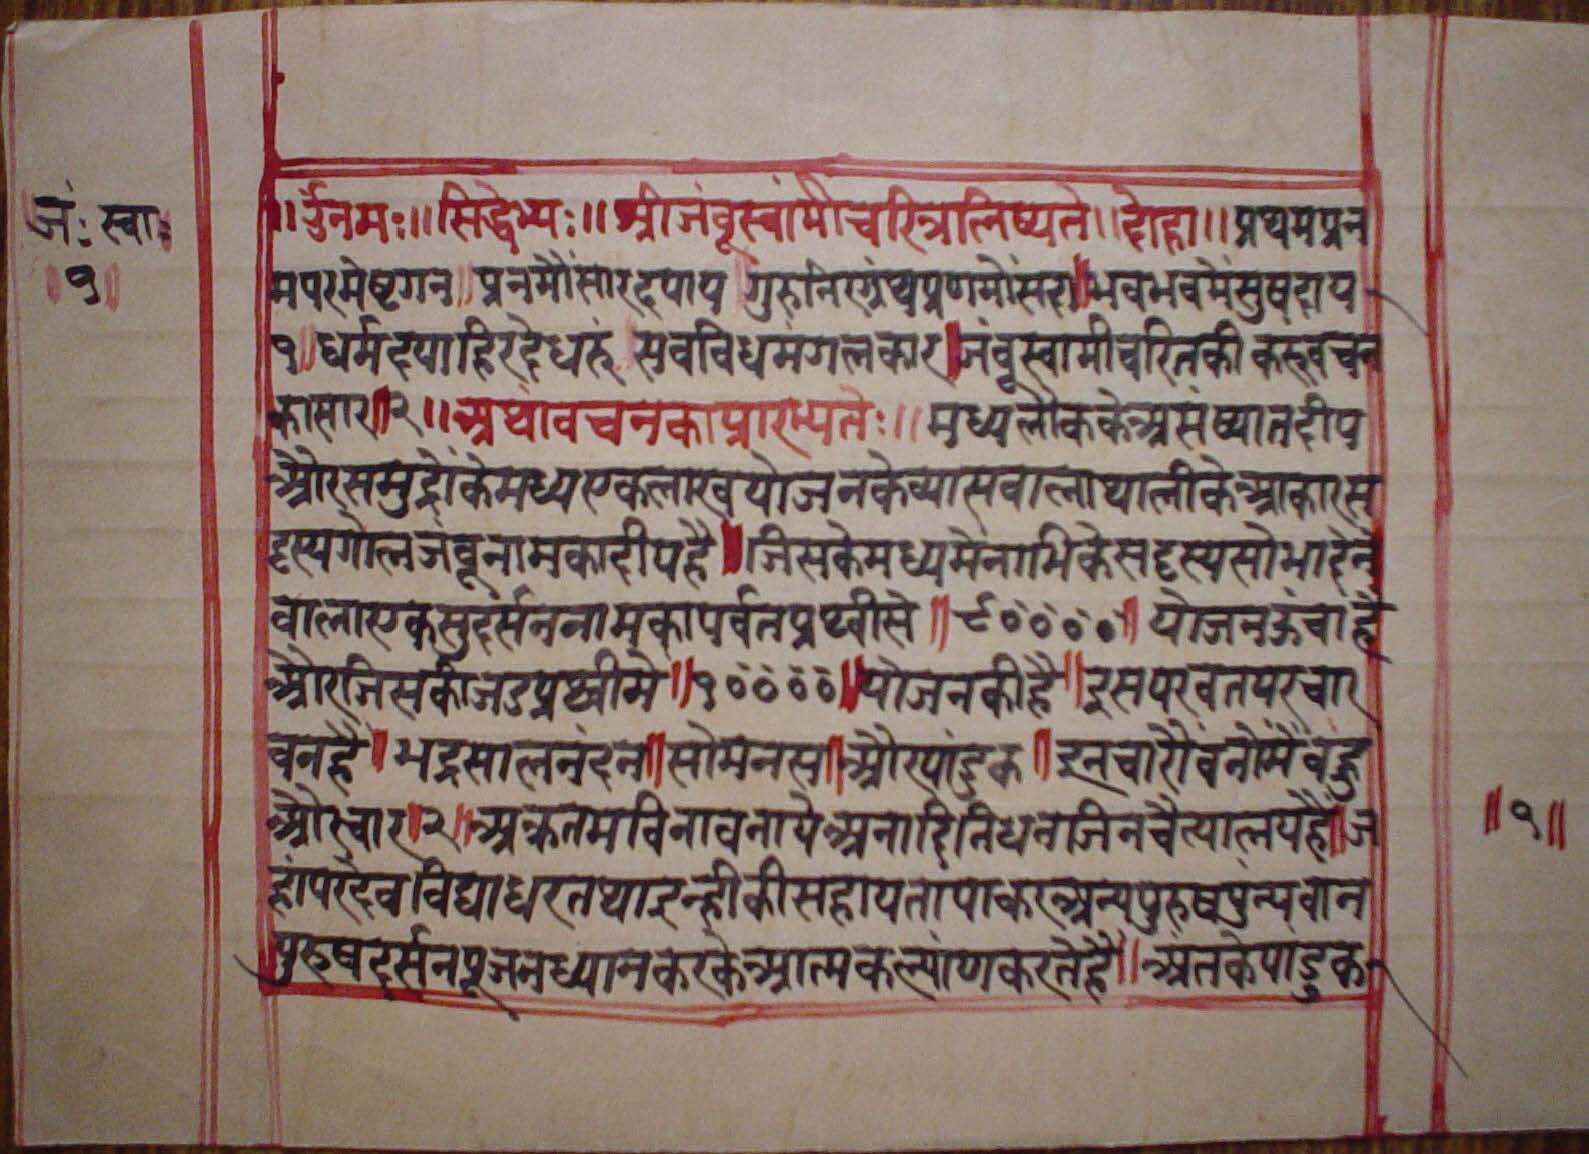 जं: स्वा:
॥ १ ॥
॥ ॐ नमः ॥ सिद्धेभ्यः ॥ श्री जंवूस्वांमी चरित्र लिष्यते ॥ दोहा ॥ प्रथम प्रन
म परमेष्टगन ॥ प्रनमौं सारदपाय गुरु निरग्रंथ प्रणमौं सदा ॥ भव भव मैं सुषदाय
१ ॥ धर्म दया हिरदै धरुं सव विध मंगलकार ॥ जंवूस्वामी चरित की करु वचन
का सार ॥ २ ॥ अथा वचनका प्रारभ्यते: ॥ मध्य लौक के असंष्यात दीप
और समुद्रों के मध्य एक लाख योजन के व्यास वाला थाली के आकार स
दृस्य गोल जंवू नाम का दीप है ॥ जिस के मध्य मे नाभि के सदृस्य सोभा देने
वाला एक सुदर्सन नाम का पर्वत प्रथ्वी से ॥ ९०००० ॥ योजन ऊंचा है
और जिस की जड प्रथ्वी मे ॥ १०००० ॥ योजन की है ॥ इस परवत पर चार
वन है ॥ भद्रसाल नंदन ॥ सोमनस ॥ और पांडुक ॥ इन चारौ वनों मैं
और चार ॥ २ ॥ अक्रतम विना वनाये अनादि निधन जिन चैत्यालय है ॥ ज
हां पर देव विद्याधर तथा इन्ही की सहायता पाकर अन्य पुरुष पुंन्यवान
पुरुष दर्सन पूजन ध्यान करके आत्म कल्यांण करते है ॥ अंत के पांडुक
॥ १ ॥